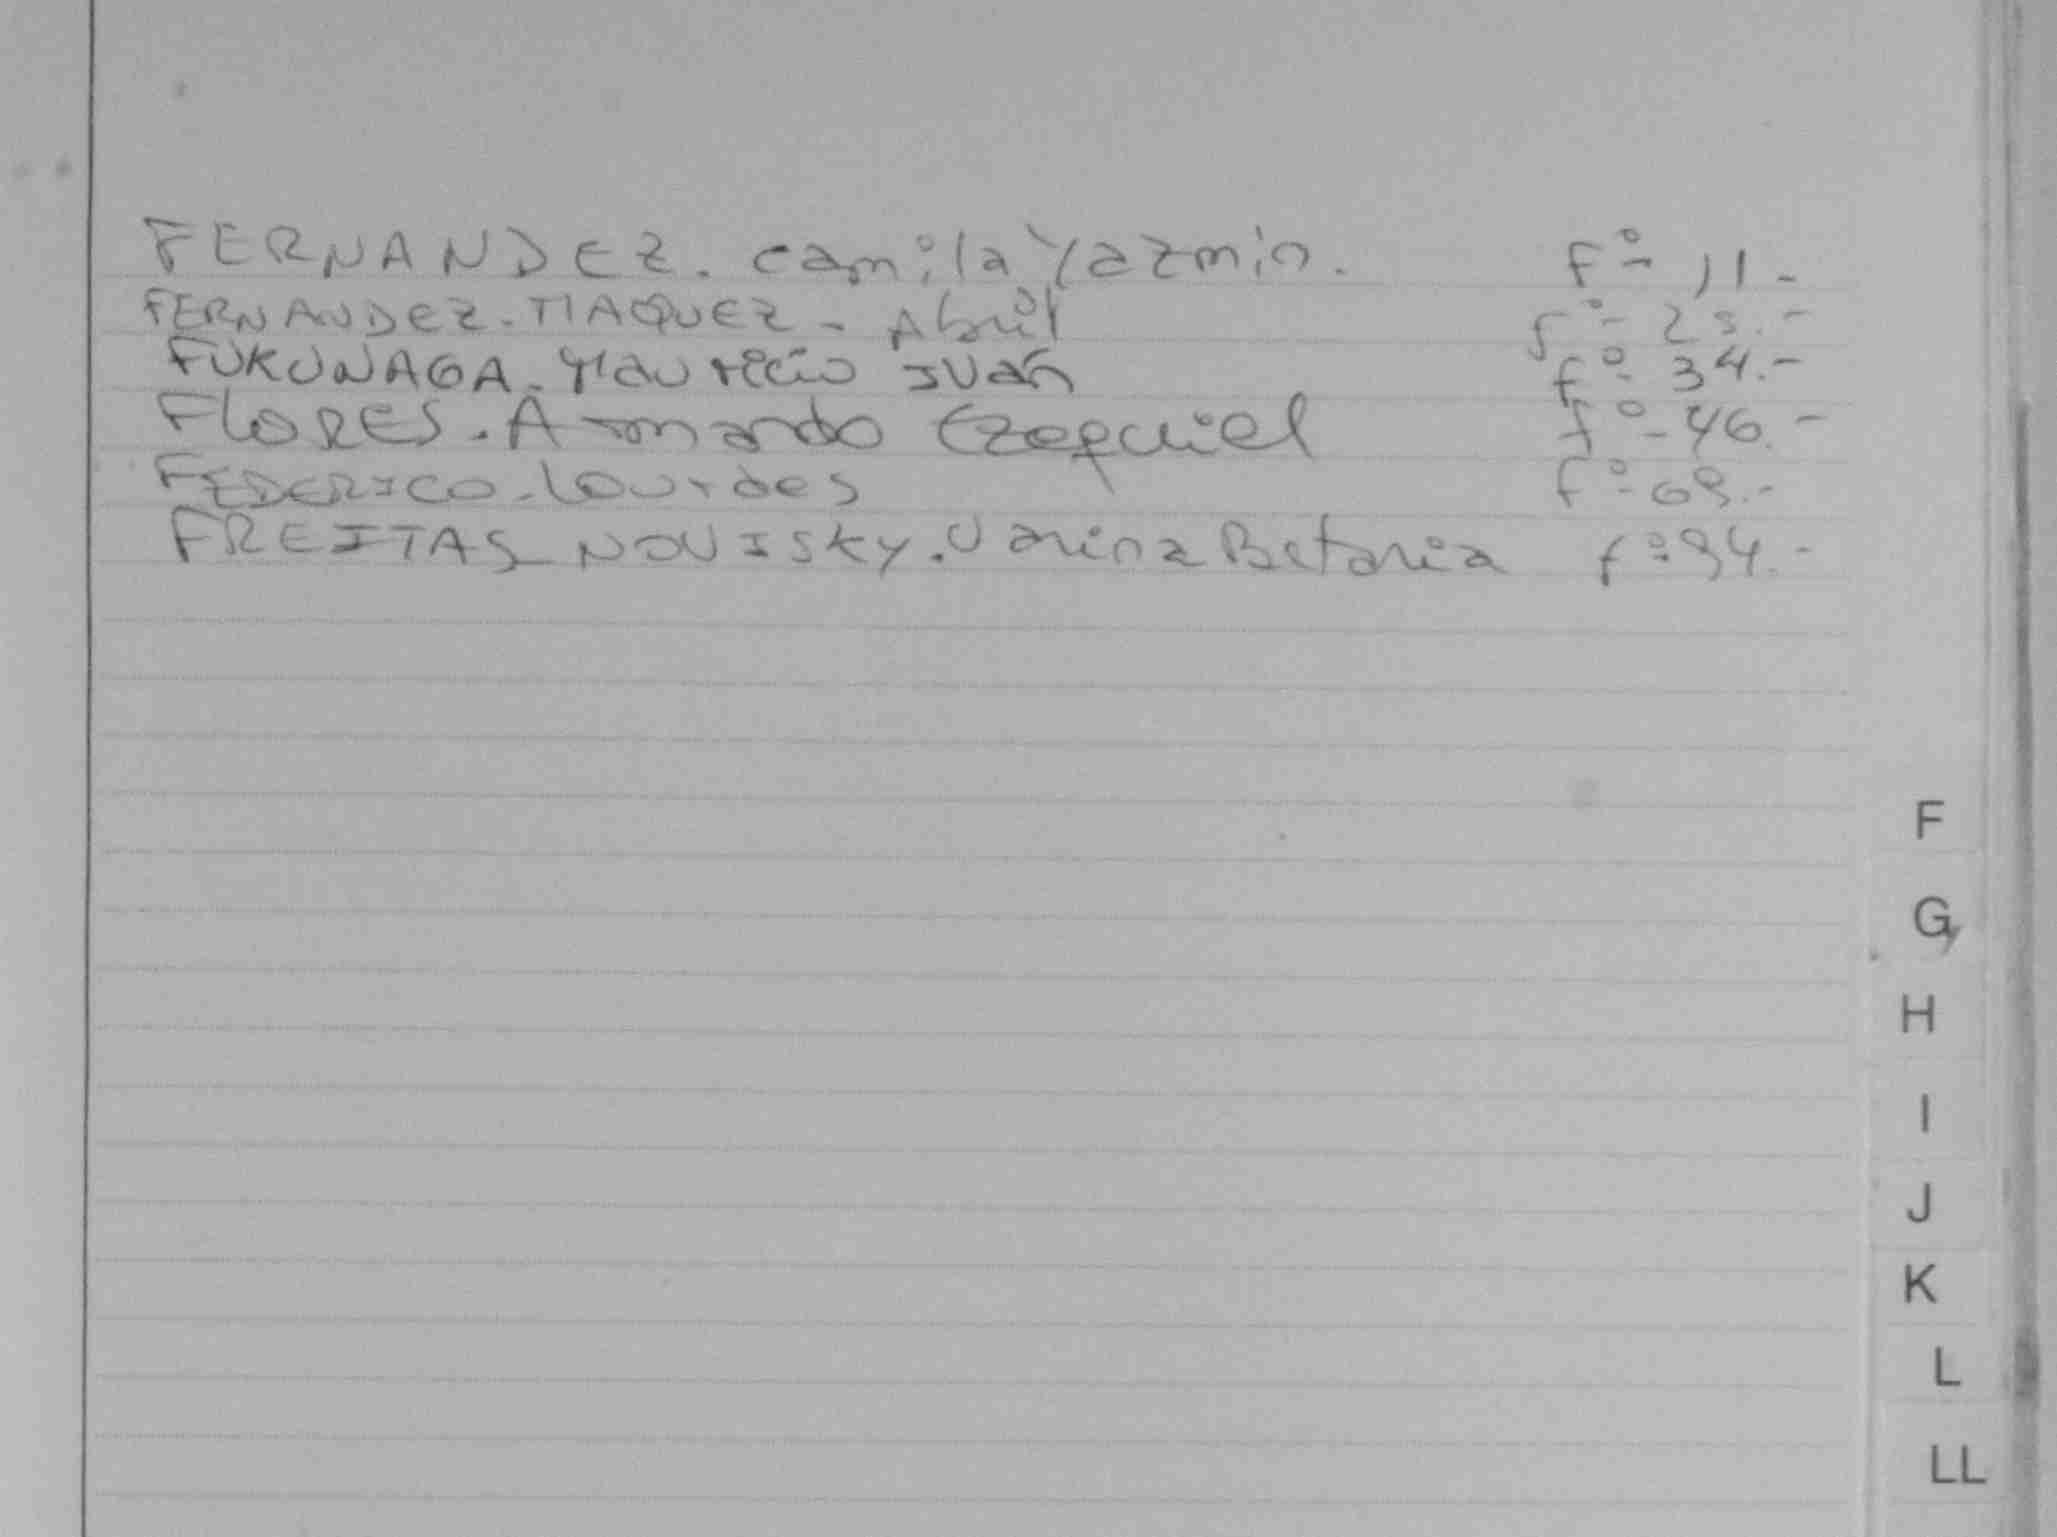 FERNANDEZ. Camila Yazmin. fº 11.-
FERNANDEZ - MAQUEZ - Abril fº
FUKUNAGA - Mauricio Juan fº 34.-
FLORES. Armando Ezequiel fº 46.-
FEDERICO - Lourdes fº 69.-
FREITAS NOVISKY. Betania fº 94.-
F
G
H
I
J
K
L
LL